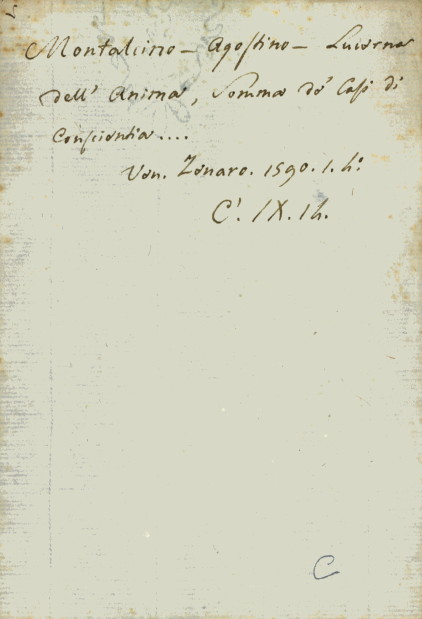 Montalcino - Agostino - Lucerna
dell' Anima, Somma de' Casi di
Conscientia....
Ven. Zenaro. 1590. 1. 4°
C'. IX. 14.
C